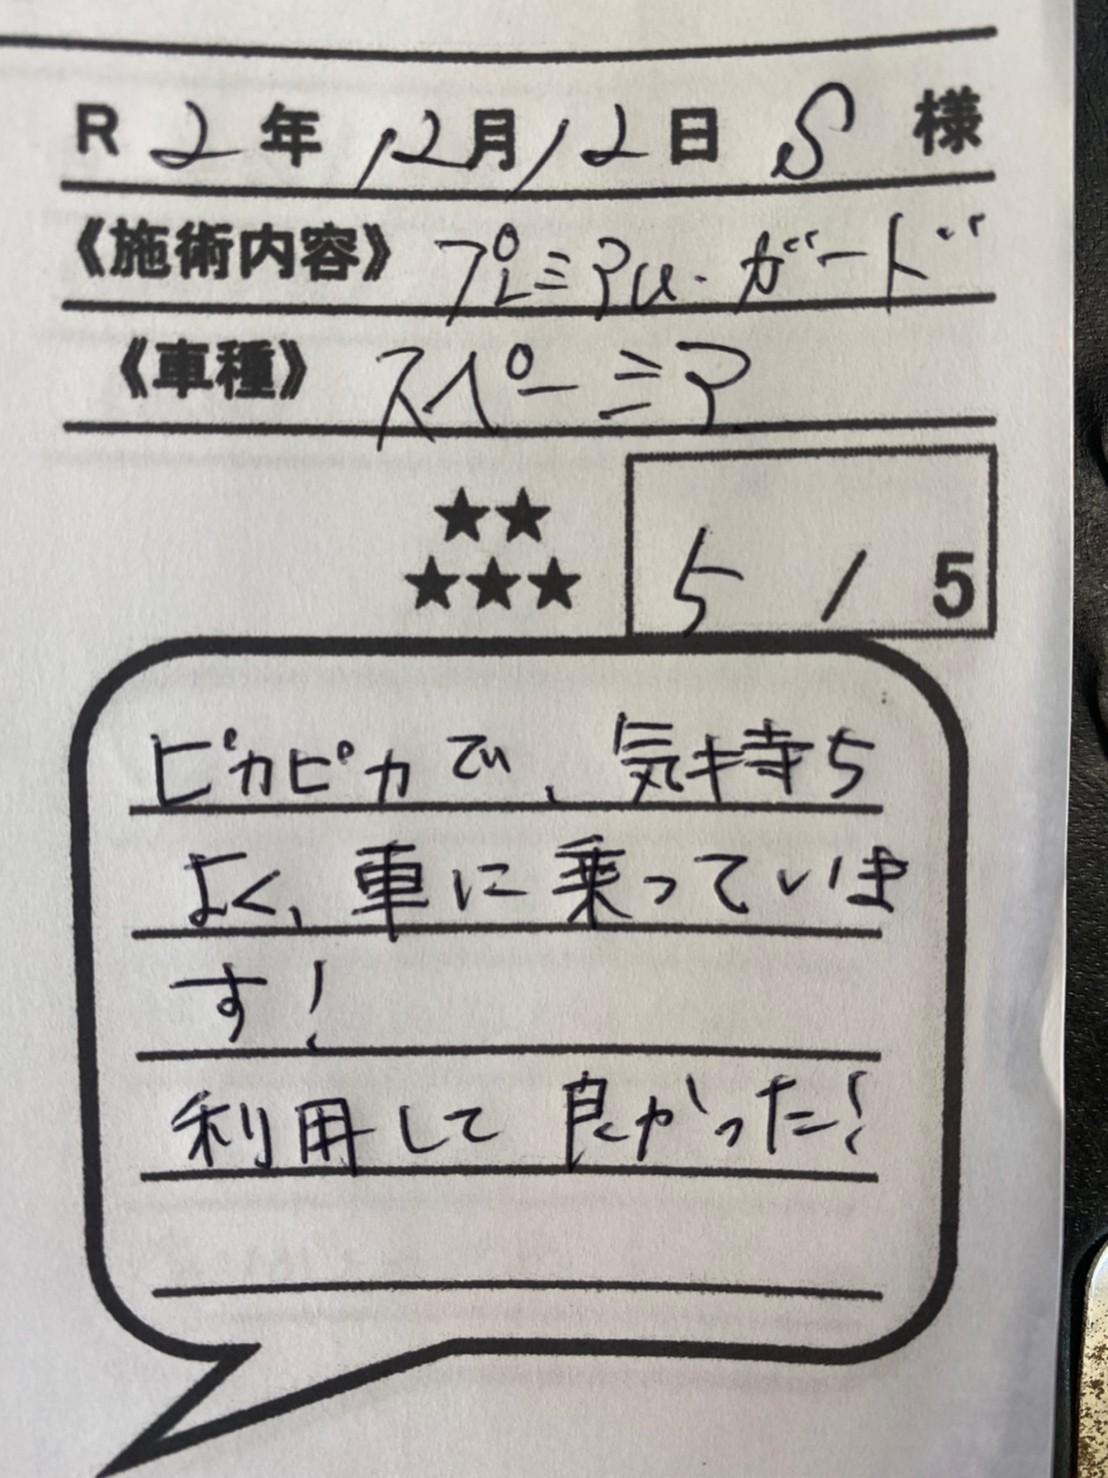 R 2年 12月 12日 S 様
《施術内容》 プレミアム・ガード
《車種》 スペーシア
★★
★★★ 5 / 5
ピカピカで、気持ち
よく、車に乗っていま
す!
利用して良かった!